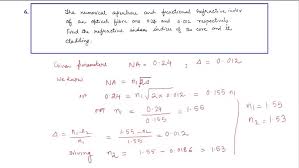 6. The numerical aperture and fractional refractive index
of an optical fibre are 0.24 and 0.012 respectively.
Find the refractive indices of the core and the
cladding.
Given parameters NA = 0.24 ; Δ = 0.012
We know NA = n₁√2Δ
or 0.24 = n₁√2 x 0.012 = 0.155 n₁
or n₁ = 0.24 / 0.155 = 1.55
Δ = n₁-n₂ / n₁ = 1.55-n₂ / 1.55 = 0.012
n₁ = 1.55
n₂ = 1.53
n₂ = 1.55 - 0.0186 = 1.53